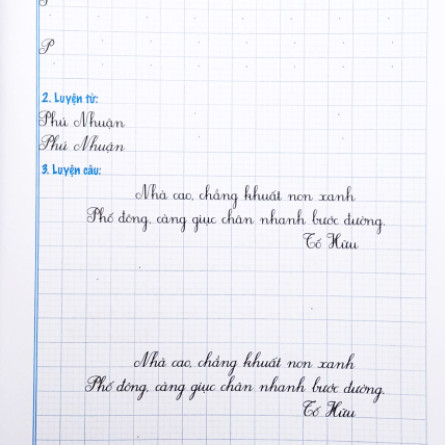 P
2. Luyện từ:
Phú Nhuận
Phú Nhuận
3. Luyện câu:
Nhà cao, chẳng khuất non xanh
Phố đông, càng giục chân nhanh bước đường.
Tố Hữu
Nhà cao, chẳng khuất non xanh
Phố đông, càng giục chân nhanh bước đường.
Tố Hữu